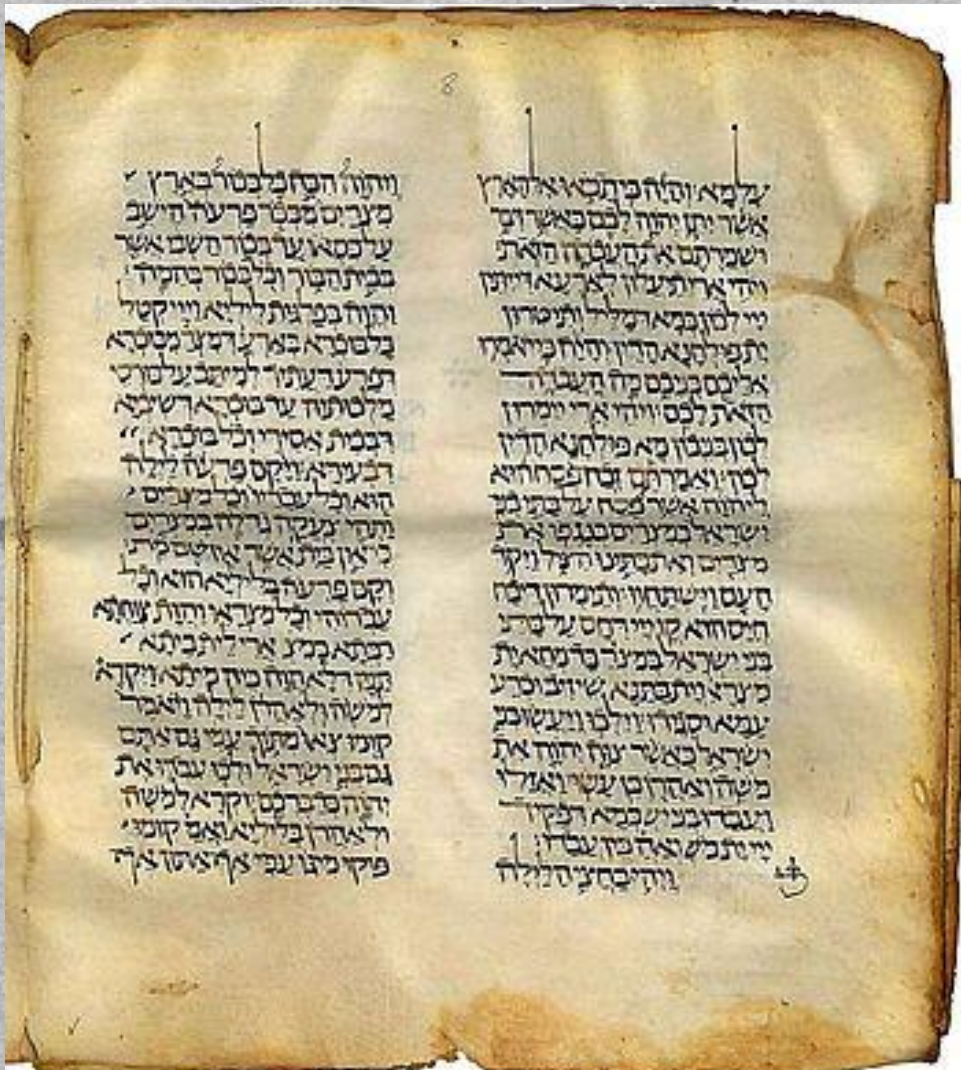 עלמא והיה כי תבאו אל הארץ
אשר יתן יהוה לכם כאשר דבר
ושמרתם את העבדה הזאת
ויהי ארי תיעלון לארעא דייתין
ייי לכון כמא דמליל ותיטרון
ית פולחנא הדין והיה כי יאמרו
אליכם בניכם מה העבדה
הזאת לכם ויהי ארי יימרון
לכון בניכון מא פולחנא הדין
לכון ואמרתם זבח פסח הוא
ליהוה אשר פסח על בתי בני
ישראל במצרים בנגפו את
מצרים ואת בתינו הציל ויקד
העם וישתחוו ותימרון דיבח
חיס הוא קדם ייי דחס על בתי
בני ישראל במצר כד מחא ית
מצראי וית בתנא שיזיב וכרע
עמא וסגידו וילכו ויעשו בני
ישראל כאשר צוה יהוה את
משה ואהרן כן עשו ואזלו
ועבדו בני יש כמא דפקיד
ייי ית מש ואה כין עבדו׃
ויהי בחצי הלילה
ויהוה הכה כל בכור בארץ
מצרים מבכר פרעה הישב
על כסאו עד בכור השבי אשר
בבית הבור וכל בכור בהמה
והוה בפלגות ליליא וייי קטל
כל בוכרא בארעא דמצר מבוכרא
דפרעה דעתיד למיתב על כורסי
מלכותיה עד בוכרא דשיביא
דבבית אסירי וכל בוכרא
דבעירא ויקם פרעה לילה
הוא וכל עבדיו וכל מצרים
ותהי צעקה גדלה במצרים
כי אין בית אשר אין שם מת
וקם פרעה בליליא הוא וכל
עבדוהי וכל מצראי והות צוחתא
רבתא במצ ארי לית ביתא
תמן דלא הוה ביה מיתא ויקרא
למשה ולאהרן לילה ויאמר
קומו צאו מתוך עמי גם אתם
גם בני ישראל ולכו עבדו את
יהוה כדברכם וקרא למשה
ולאהרן בליליא ואמ קומו
פוקו מיגו עמי אף אתון אף